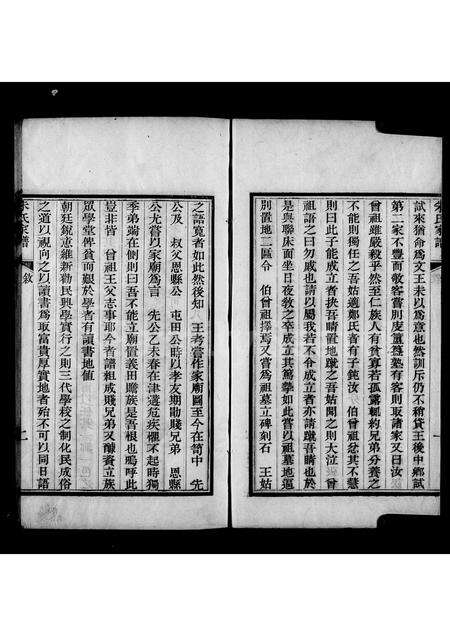 試來猶命爲文王未以爲意也然訓斥仍不稍貸王後中鄉試
第二家不豐而敬客嘗削皮置墓塾有客則取諸家又曰汝
曾祖雖嚴毅乎然至仁族人有貧寡若孤露輒約兄弟分養之
不足則獨任之吾姑適鄭氏者有子鈍汝 伯曾祖忿其不慧
則曰此子能成立者抉吾睛置地蹴之吾姑聞之則大泣 曾
祖語之曰勿戚也請以屬我若不令成立者亦請蹴吾睛也於
是與聯床面坐日夜敎之卒成立其篤摯如此嘗以祖墓地逼
別置地二區令 伯曾祖擇焉又嘗爲祖墓立碑刻石 王姑
之語寬者如此然後知 王考嘗作家廟圖至今在笥中 先
公及 叔父恩縣公 屯田公時以孝友期勖賤兄弟 恩縣
公尤嘗以家廟爲言 先公乙未春在津遘危疾懼不起時獨
季弟端在側則曰吾不能立廟置義田贍族是吾根也嗚呼此
豈非皆 曾祖王父志事耶今者譜組成賤兄弟又醵資立族
眾學堂俾貧而艱於學者有讀書地値
朝廷銳意維新勸民興學實行之則三代學校之制化民成俗
之道以視向之以讀書爲取富貴厚實地者殆不可以同日語
朱氏家譜 敘 二